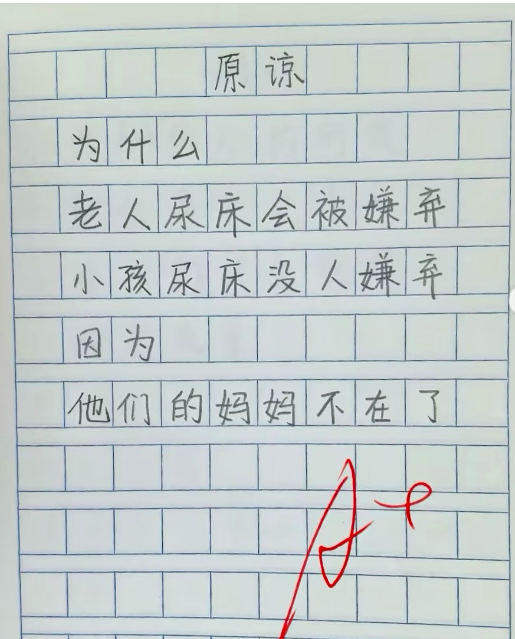 原谅
为什么
老人尿床会被嫌弃
小孩尿床没人嫌弃
因为
他们的妈妈不在了